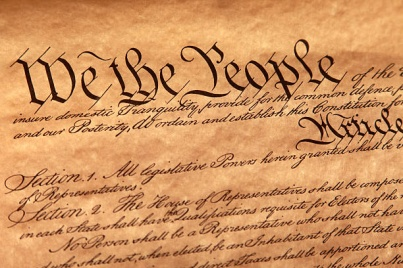 We the People of the
insure domestic Tranquility, provide for the common defence,
and our Posterity, do ordain and establish this Constitution for
Article
Section 1. All legislative Powers herein granted shall be
of Representatives.
Section 2. The House of Representatives shall be
in each State shall have Qualifications requisite for Electors of the
No Person shall be a Representative who shall not have
who shall not, when elected, be an Inhabitant of that State
direct Taxes shall be apportioned